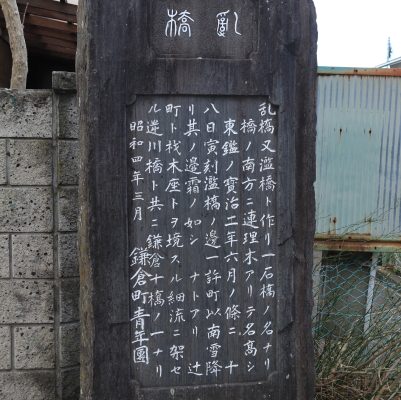 乱橋
乱橋又濫橋ト作リ一石橋ノ名ナリ
橋ノ南方ニ連理木アリテ名高シ
東鑑ノ寳治二年六月ノ條ニ十
八日寅刻濫橋ノ邊一許町以南雪降
リ其ノ邊霜ノ如シナトアリ辻
町ト材木座トヲ境スル細流ニ架セ
ル逆川橋ト共ニ鎌倉十橋ノ一ナリ
昭和四年三月 鎌倉町青年團